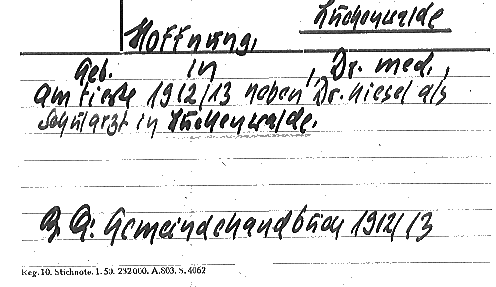 Luckenwalde
Hoffnung,
Geb. in , Dr. med.,
amtierte 1912/13 neben Dr. Niesel als
Schularzt in Luckenwalde.
B G: Gemeindehandbuch 1912/13
Reg. 10. Stichnote. 1. 50. 232000. A.803. S. 4062